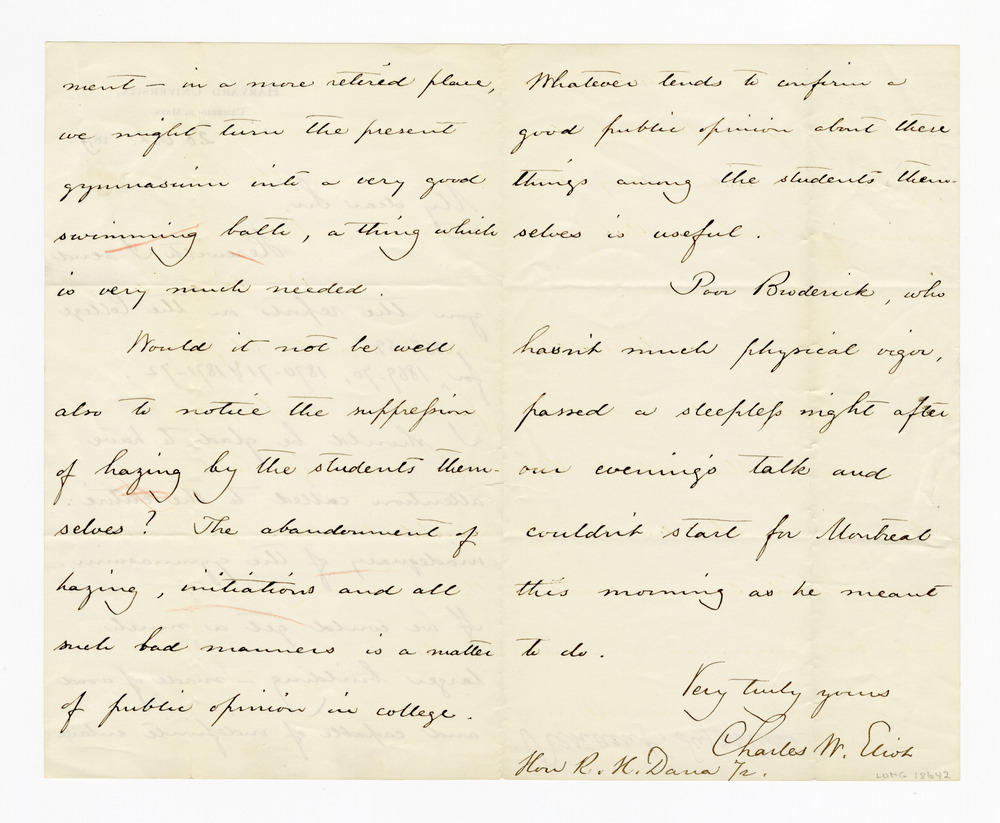 ment — in a more retired place,
we might turn the present
gymnasium into a very good
swimming bath, a thing which
is very much needed.
Would it not be well
also to notice the suppression
of hazing by the students them-
selves? The abandonment of
hazing, initiations and all
such bad manners is a matter
of public opinion in college.
Whatever tends to confirm a
good public opinion about these
things among the students them-
selves is useful.
Poor Broderick, who
hasn't much physical vigor,
passed a sleepless night after
our evening's talk and
couldn't start for Montreal
this morning as he meant
to do.
Very truly yours
Charles W. Eliot
Hon R. H. Dana Jr.
LONG 18642